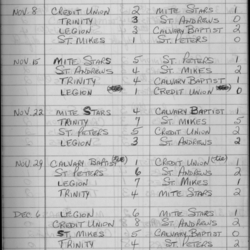 NOV. 8 CREDIT UNION 2 MITE STARS 1
TRINITY 3 ST ANDREWS 0
LEGION 3 CALVARY BAPTIST 2
ST. MIKES 1 ST PETERS 0
NOV 15 MITE STARS 5 ST PETERS 1
ST ANDREWS 4 ST MIKES 2
TRINITY 4 CALVARY BAPTIST 1
LEGION CREDIT UNION
NOV. 22 MITE STARS 4 CALVARY BAPTIST 1
TRINITY 7 ST. MIKES 5
ST PETERS 5 CREDIT UNION 2
LEGION 3 ST ANDREWS 2
NOV 29 CALVARY BAPTIST 1 CREDIT UNION 1
ST PETERS 6 ST ANDREWS 2
LEGION 7 ST. MIKES 1
TRINITY 4 MITE STARS 2
DEC 6 LEGION 6 MITE STARS 1
CREDIT UNION 8 ST ANDREWS
ST. MIKES CALVARY BAPTIST 0
TRINITY 4 ST PETERS 1